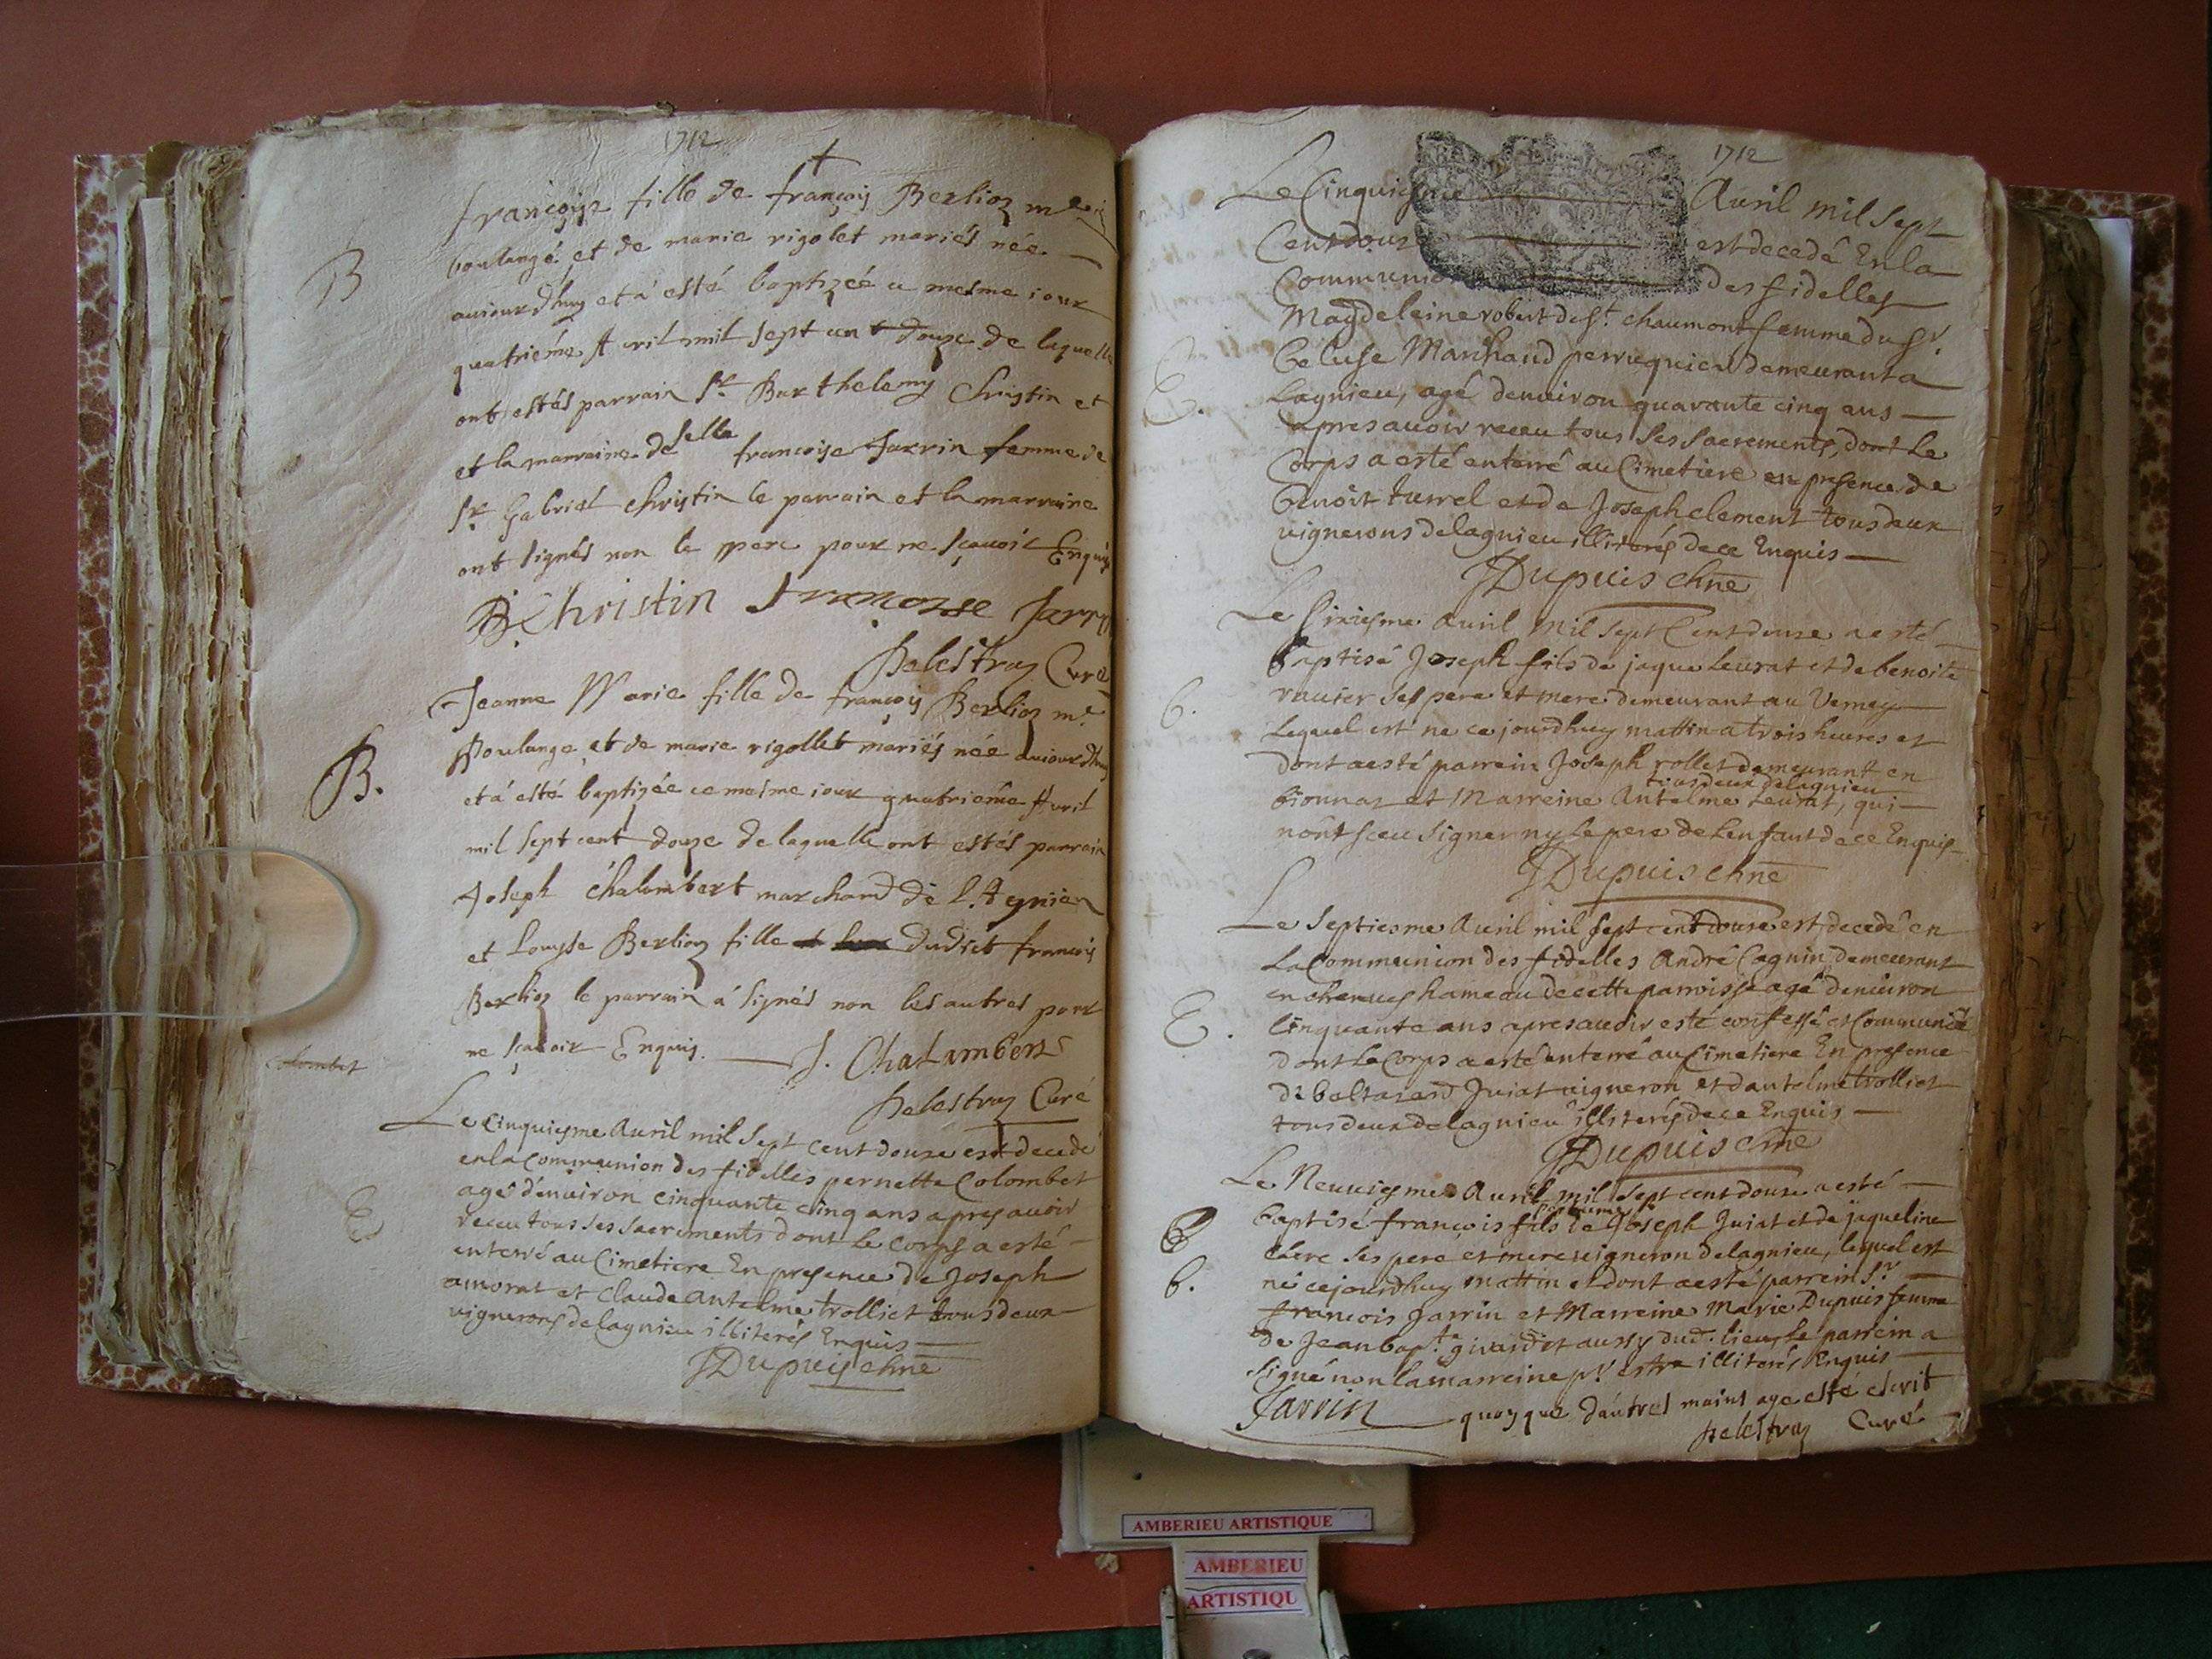 1712
françoise fille de françois Berlioz me
B
boulangé et de marie rigolet mariés née
aujourdhuy et a esté baptizéé ce mesme iour
quatrieme Avril mil sept cent douze de laquelle
ont estés parrain Sr. Barthelemy Christin et
et la marraine deselle françoise Jarrin femme de
Sr Gabriel christin le parrain et la marraine
ont signés non le pere pour ne sçavoir Enquis
B Christin françoise Jarrin
pelestray Curé
Jeanne Marie fille de françois Berlioz me
B.
Boulange et de marie rigollet mariés née aujourdhuy
et a esté baptizée ce mesme iour quatriême Avril
mil sept cent douze de laquelle ont estés parrain
Joseph chalambert marchand de L'Agnieu
et Louyse Berlioz fille dudict françois
Berlioz le parrain a signés non les autres pour
ne sçavoir Enquis. J. Chalambert
colombet
pelestray Curé
Le Cinquiesme Auril mil sept cent douse est decedé
en la Communion des fidelles pernette Colombet
agés d'enuiron cinquante cinq ans apres auoir
E
receu tous ses sacrements dont le corps a esté
enterré au Cimetiere En presence de Joseph
amorat et claude antelme trolliet tous deux
vignerons de lagnieu illiterés Enquis
JDupuis chne
1712
Le Cinquiesme Auril mil sept
Cent douze est decedé En la
Communion des fidelles
Magdeleine robert de St. chaumont femme du Sr.
beluse Marchand perruquier demeurant a
E.
Lagnieu, agé denuiron quarante cinq ans
apres auoir receu tous ses sacrements, dont le
Corps a esté enterré au Cimetiere en presence de
benoit turrel et de Joseph clement tous deux
vignerons de lagnieu illiterés de ce Enquis
JDupuis chne
Le Sixiesme Auril mil sept Cent douse a esté
baptisé Joseph fils de jaque leurat et de benoite
b.
rauier ses pere et mere demeurant au Verney
Lequel est ne ce jourdhuy mattin a trois heures et
dont a esté parrein Joseph rollet demeurant en
tous deux de lagnieu
bionnas et Marreine Antelme leurat, qui
nont sceu signer ny le pere de lenfant de ce Enquis
JDupuis chne
Le Septiesme Auril mil sept cent douse est decedé en
La Communion des fidelles André Cagnin demeurant
en cheruey hameau de cette parroisse agé denuiron
E.
Cinquante ans apres auoir esté confessé et Communié
dont le Corps a esté enterré au Cimetiere En presence
de baltazard Juiat vigneron et dantelme trolliet
tous deux de lagnieu illiterés de ce Enquis
JDupuis chne
Le Neuuiesme Auril mil sept cent douse a esté
baptisé françois fils de Joseph Juiat et de jaqueline
B
clere ses pere et mere vigneron de lagnieu, lequel est
b.
né cejourdhuy mattin et dont a esté parrein Sr.
francois Jarrin et Marreine Marie Dupuis femme
de Jean bapt. girardit aussy dud. lieu, le parrein a
signé non la marreine pr. estre illiterés Enquis
Jarrin quoyque d'autres mains aye esté escrit
pelestray Curé
AMBERIEU ARTISTIQUE
AMBERIEU
ARTISTIQU